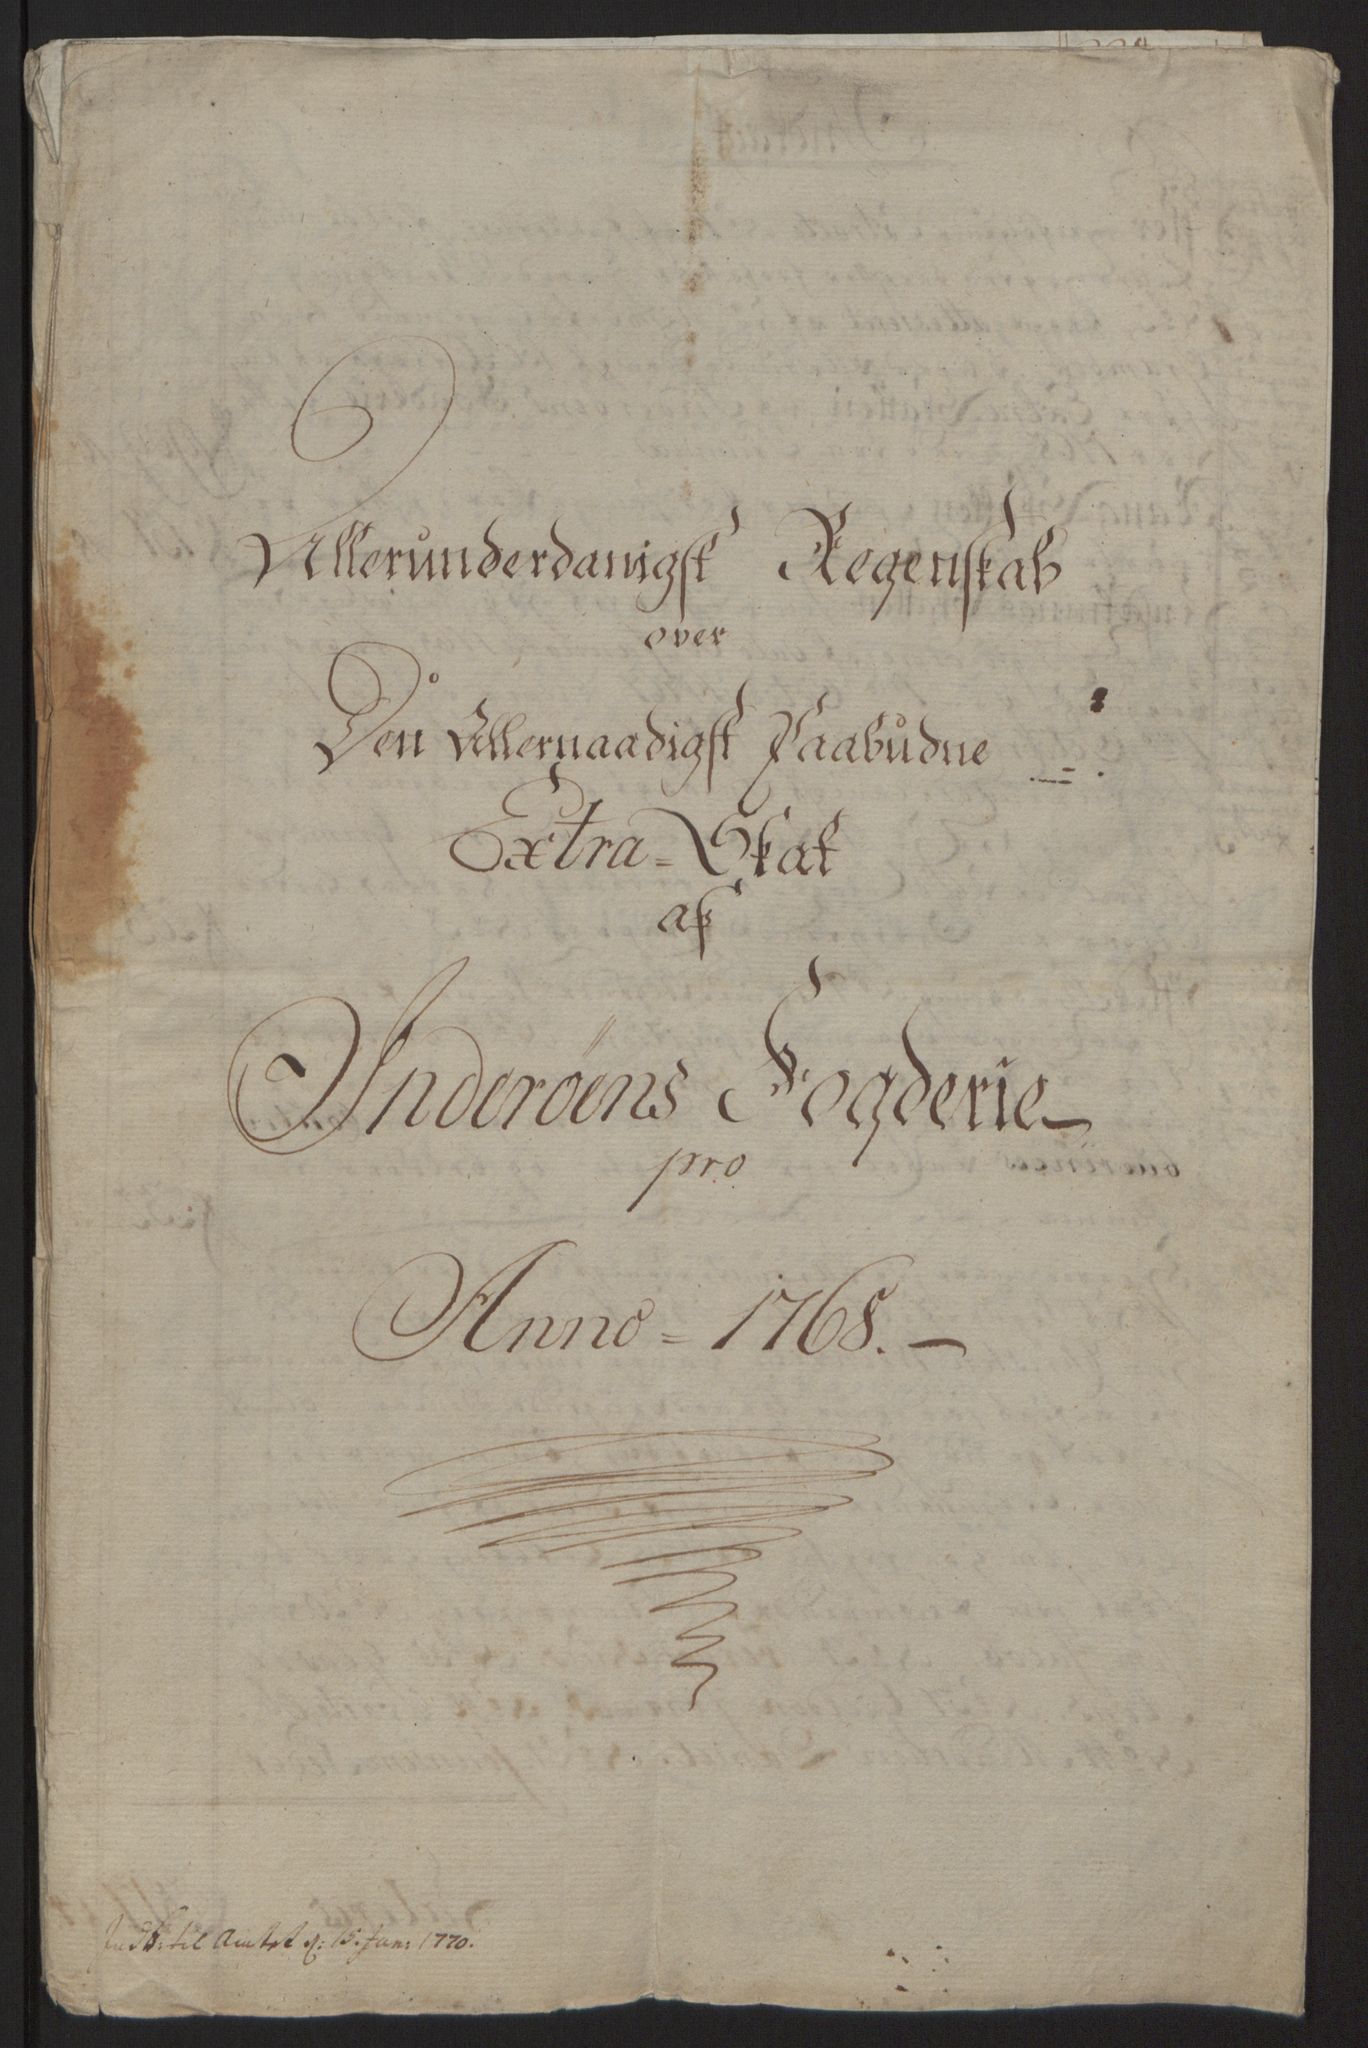 Allerunderdanigst Regenskab
over
Den Allernaadigst Paabudne
Extra-Skat
af
Inderöens Fogderie
pro
Anno = 1768.
Indk: til Amtet d: 15. Jan: 1770.